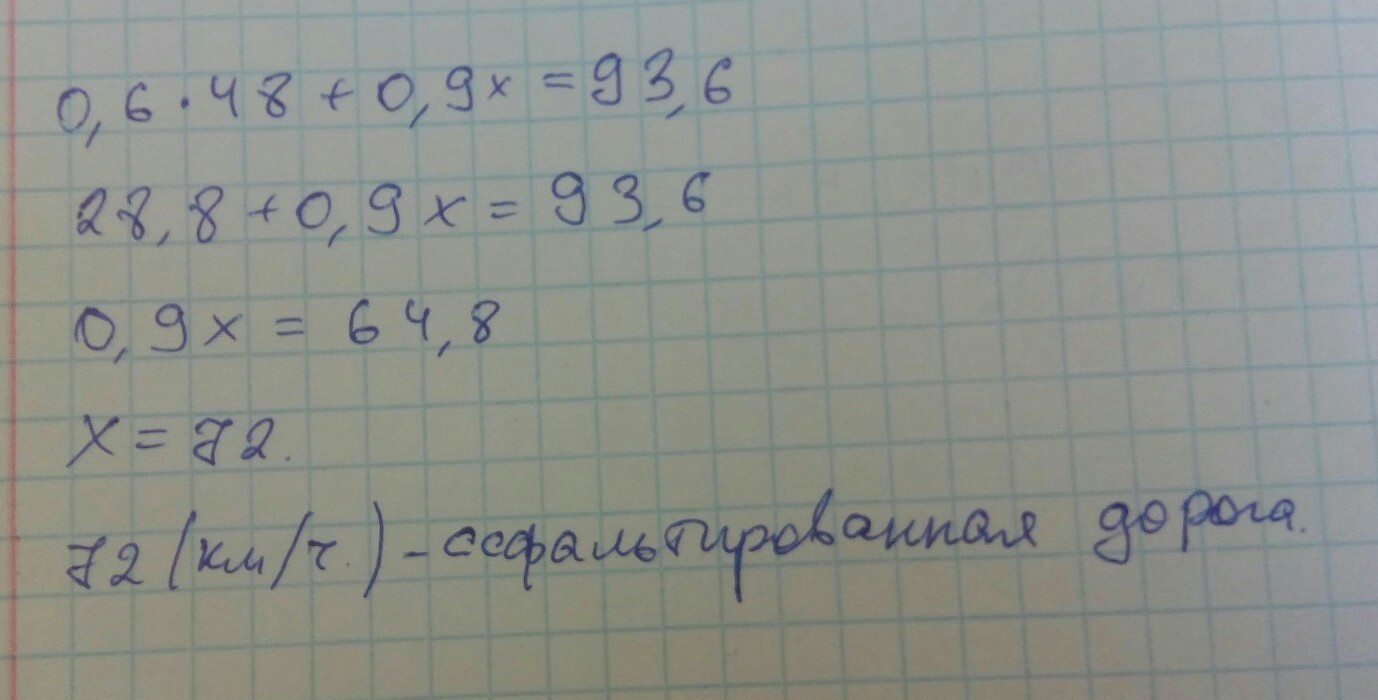 0,6 · 48 + 0,9x = 93,6
28,8 + 0,9x = 93,6
0,9x = 64,8
x = 72.
72 (км/ч.) - асфальтированная дорога.